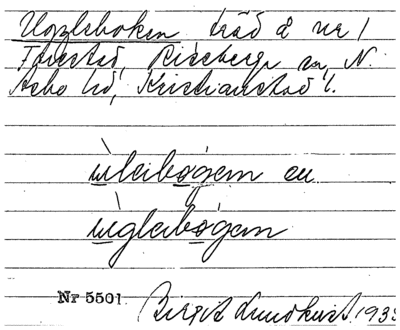 Uggleboken träd å nr 1
Färestad, Riseberga sn, N.
Åsbo hd, Kristianstad l.
ùleibogem eu.
ùgleibogem
Nr 5501 Birgit Lundkvist 193